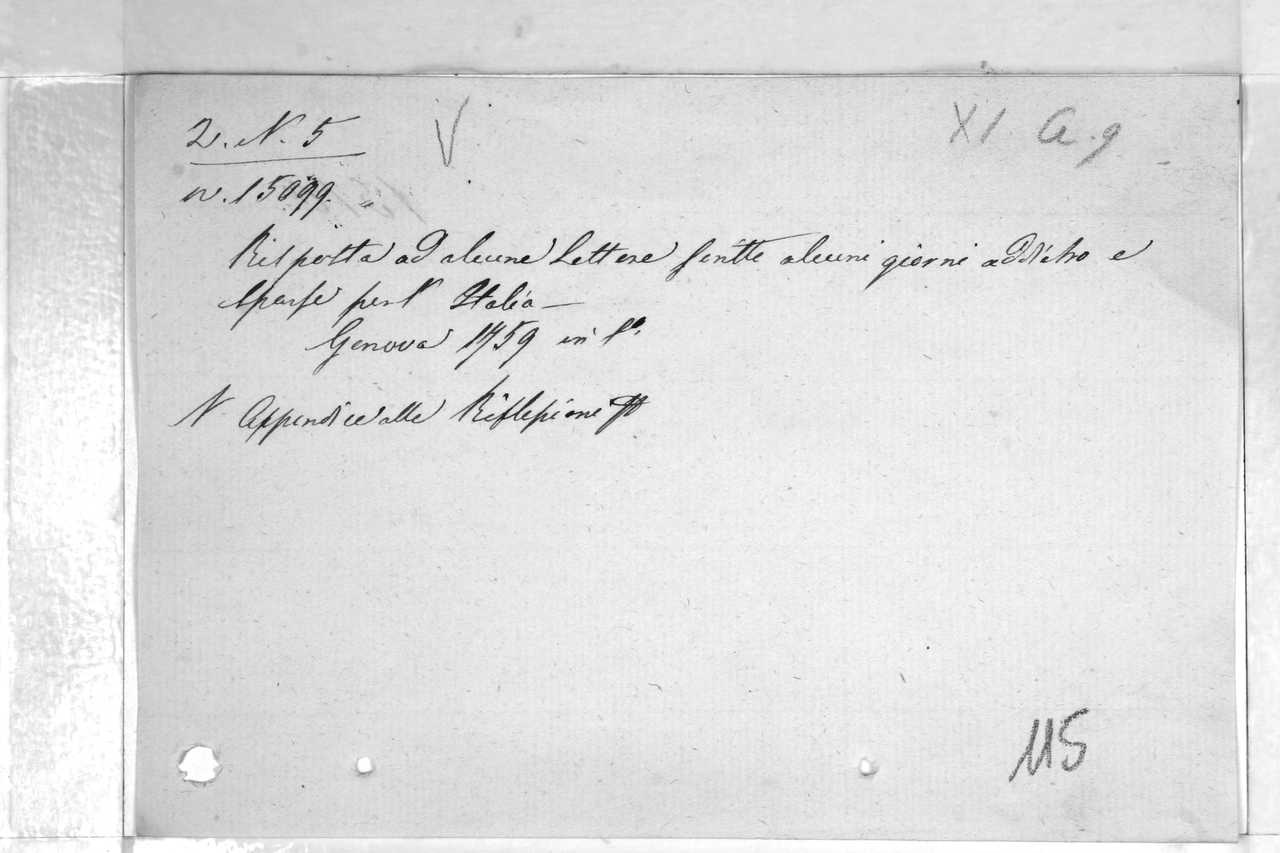 2. N. 5 V XI. a. 9
n. 15099. „
Risposta ad alcune Lettere scritte alcuni giorni addietro e
sparse per l' Italia —
Genova 1759 in 8º.
N Appendice alle Riflessione
115